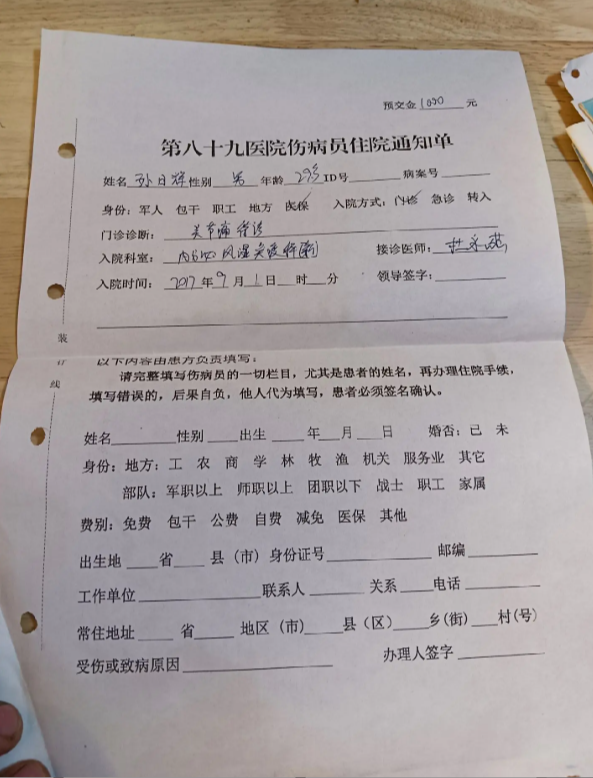 预交金 1000 元
第八十九医院伤病员住院通知单
姓名 孙日辉 性别 男 年龄 29岁 ID号 病案号
身份：军人 包干 职工 地方 医保 入院方式：门诊 急诊 转入
门诊诊断： 关节痛待诊
入院科室： 风湿免疫 接诊医师：
入院时间： 2017 年 9 月 1 日 时 分 领导签字：
装
订
线
以下内容由患方负责填写：
请完整填写伤病员的一切栏目，尤其是患者的姓名，再办理住院手续，
填写错误的，后果自负，他人代为填写，患者必须签名确认。
姓名 性别 出生 年 月 日 婚否：已 未
身份：地方：工 农 商 学 林 牧 渔 机关 服务业 其它
部队：军职以上 师职以上 团职以下 战士 职工 家属
费别：免费 包干 公费 自费 减免 医保 其他
出生地 省 县（市）身份证号 邮编
工作单位 联系人 关系 电话
常住地址 省 地区（市） 县（区） 乡(街) 村(号)
受伤或致病原因 办理人签字